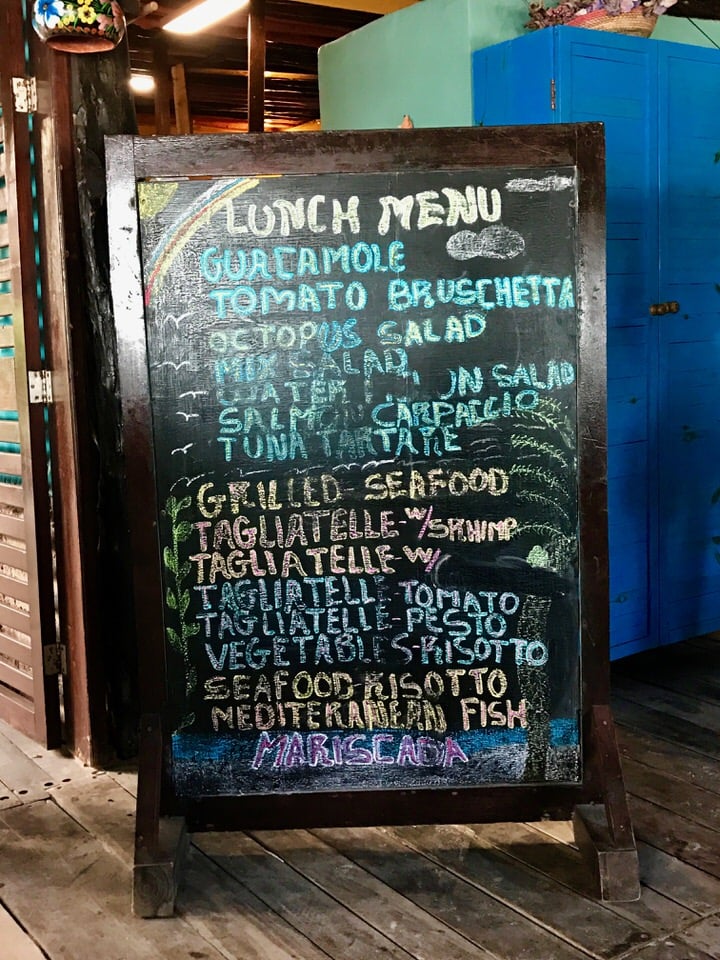 LUNCH MENU
GUACAMOLE
TOMATO BRUSCHETTA
OCTOPUS SALAD
MIX SALAD
WATER SALAD
SALMON CARPACCIO
TUNA TARTARE
GRILLED SEAFOOD
TAGLIATELLE-W/SHRIMP
TAGLIATELLE W/
TAGLIATELLE-TOMATO
TAGLIATELLE-PESTO
VEGETABLES-RISOTTO
SEAFOOD-RISOTTO
MEDITERANEAN FISH
MARISCADA